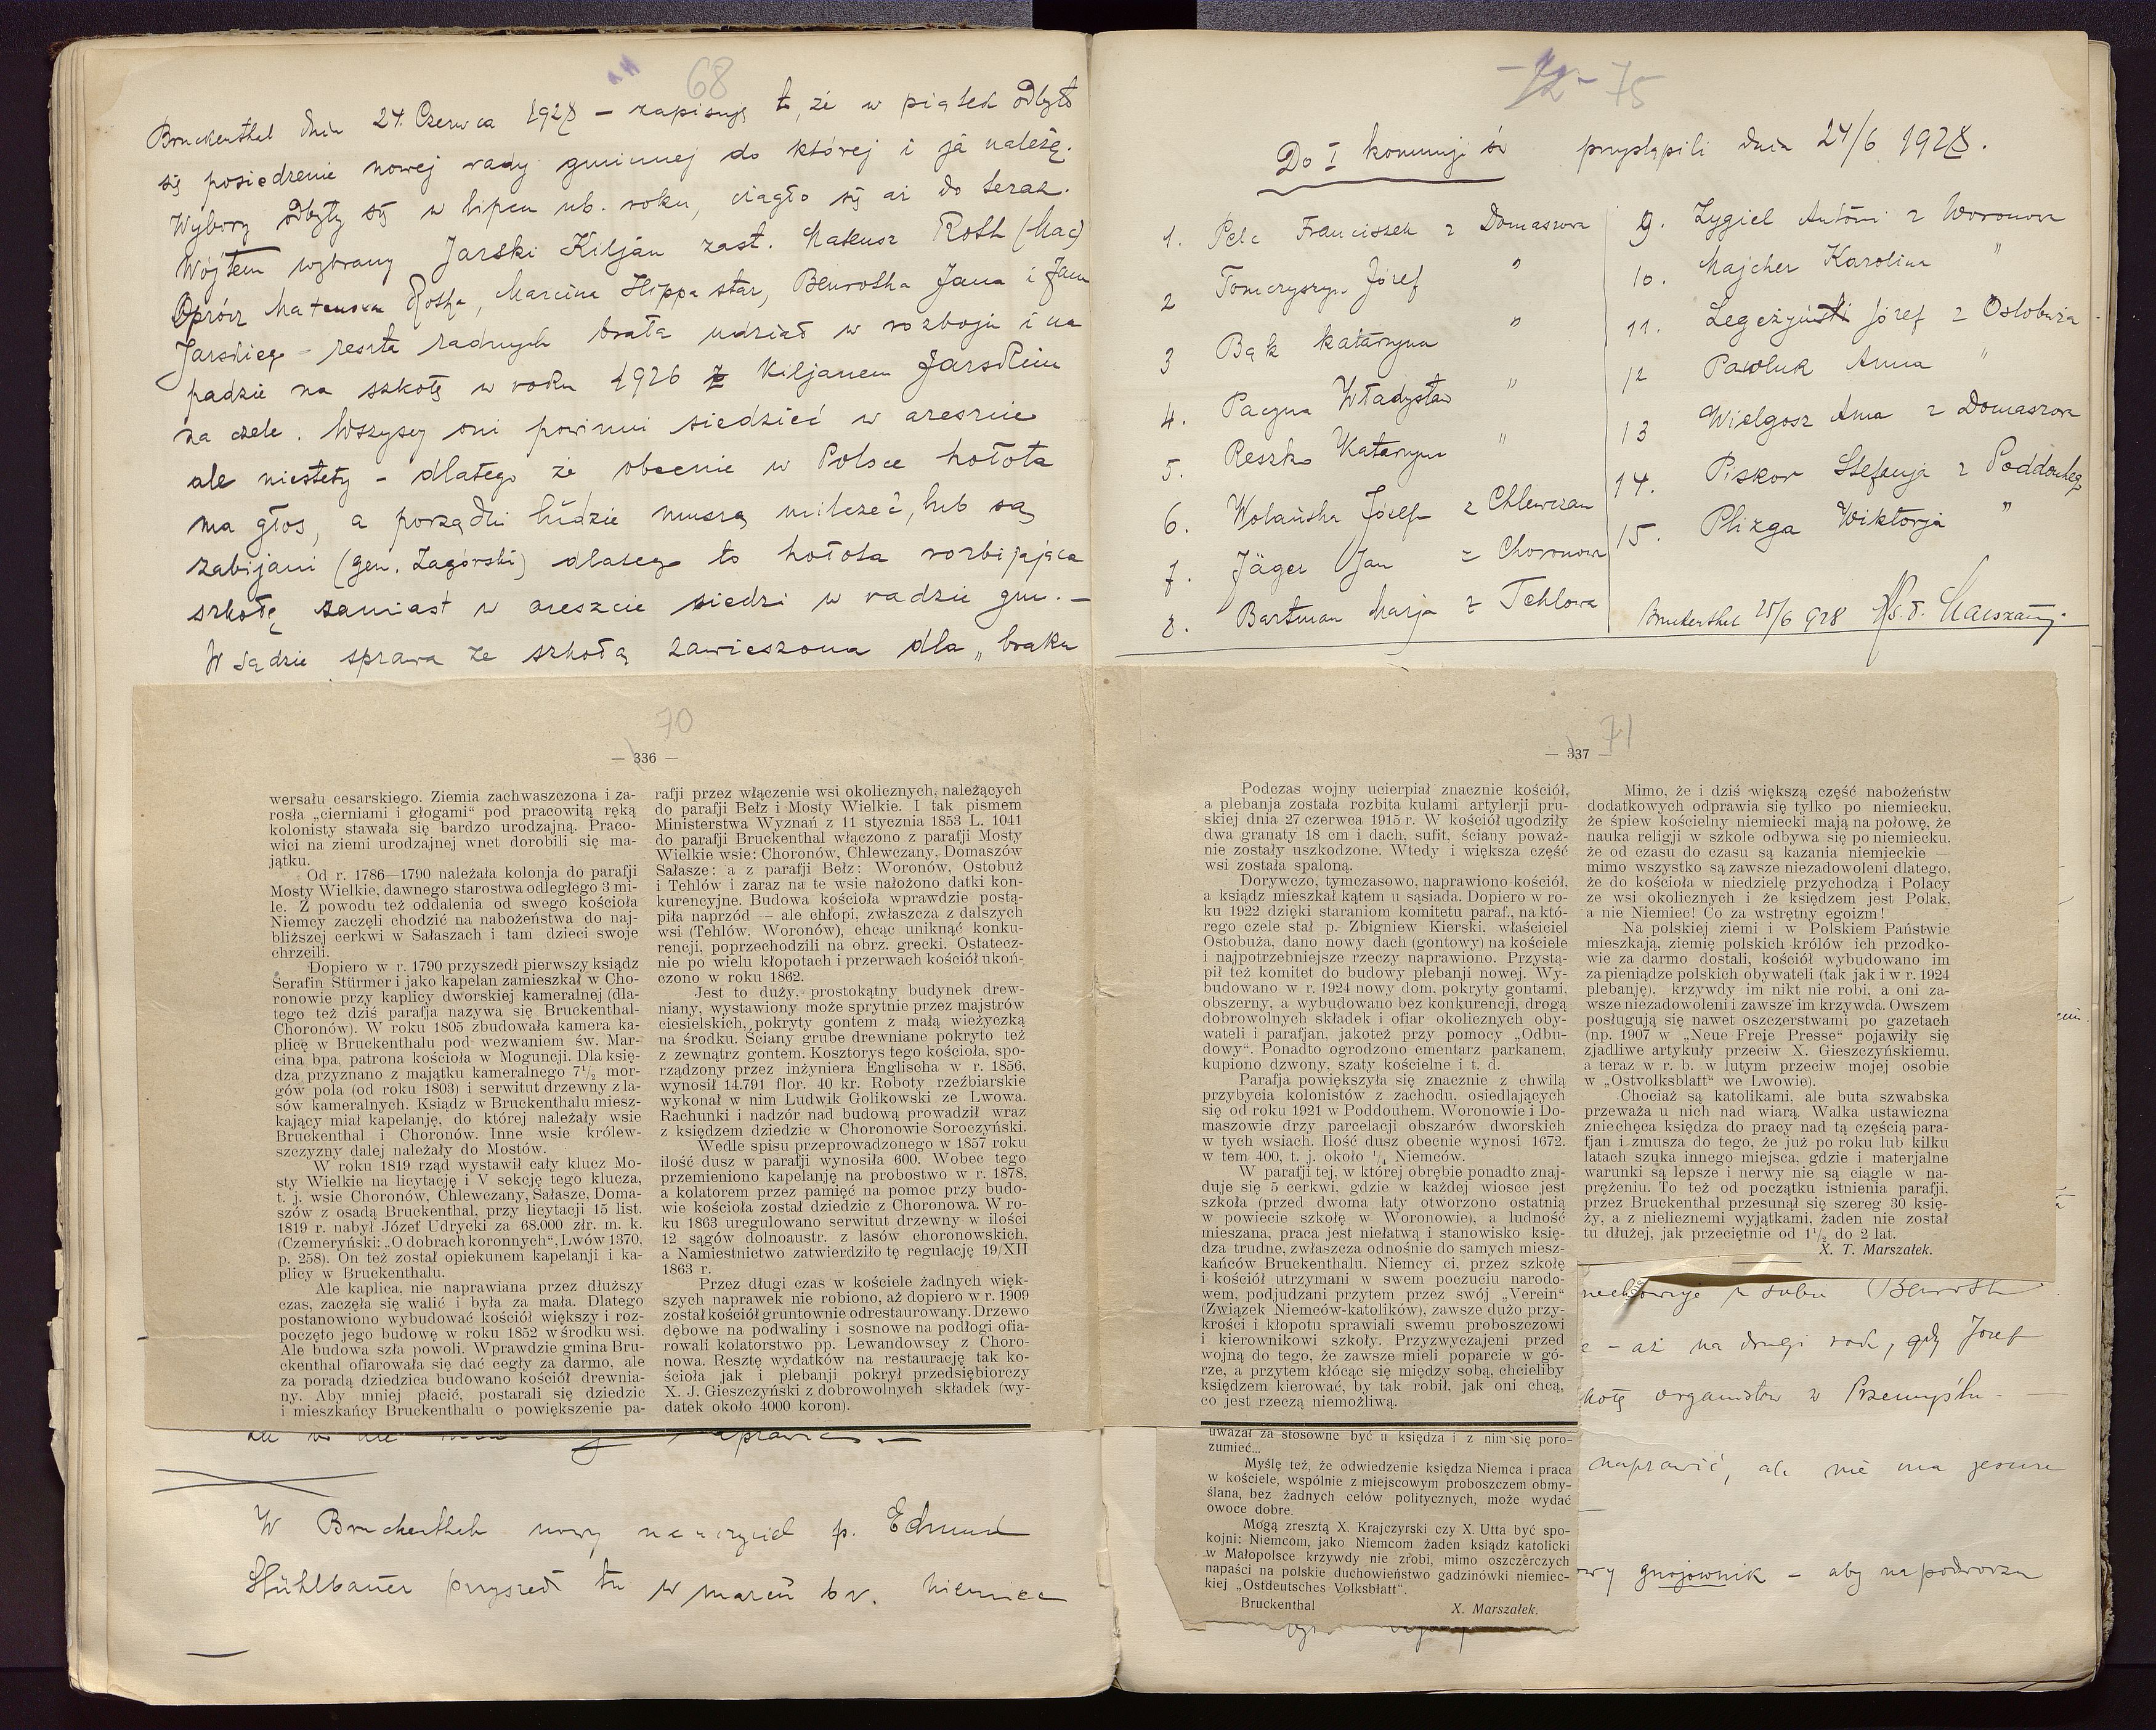 68
Bruckenthal dnia 24. Czerwca 1928 – zapisuję to, że w piątek odbyło
się posiedzenie nowej rady gminnej do której i ja należę.
Wybory odbyły się w lipcu ub. roku, ciągło się aż do teraz.
Wójtem wybrany Jarski Kiljan zast. Mateusz Roth (Mac)
Oprócz Mateusza Rotha, Marcina Hippa star, Benrotha Jana i Jana
Jarskiego – reszta radnych brała udział w rozboju i na
padzie na szkołę w roku 1926 z Kiljanem Jarskim
na czele. Wszyscy oni powinni siedzieć w areszcie
ale niestety – dlatego że obecnie w Polsce hołota
ma głos, a porządni ludzie muszą milczeć, lub są
zabijani (gen. Zagórski) dlatego to hołota rozbijająca
szkołę zamiast w areszcie siedzi w radzie gm. –
W sądzie sprawa ze szkołą zawieszona dla „braku
70
— 336 —
wersału cesarskiego. Ziemia zachwaszczona i za-
rosła „cierniami i głogami“ pod pracowitą ręką
kolonisty stawała się bardzo urodzajną. Praco-
wici na ziemi urodzajnej wnet dorobili się ma-
jątku.
Od r. 1786—1790 należała kolonja do parafji
Mosty Wielkie, dawnego starostwa odległego 3 mi-
le. Z powodu też oddalenia od swego kościoła
Niemcy zaczęli chodzić na nabożeństwa do naj-
bliższej cerkwi w Sałaszach i tam dzieci swoje
chrzcili.
Dopiero w r. 1790 przyszedł pierwszy ksiądz
Serafin Stürmer i jako kapelan zamieszkał w Cho-
ronowie przy kaplicy dworskiej kameralnej (dla-
tego też dziś parafja nazywa się Bruckenthal-
Choronów). W roku 1805 zbudowała kamera ka-
plicę w Bruckenthalu pod wezwaniem św. Mar-
cina bpa, patrona kościoła w Moguncji. Dla księ-
dza przyznano z majątku kameralnego 7½ mor-
gów pola (od roku 1803) i serwitut drzewny z la-
sów kameralnych. Ksiądz w Bruckenthalu miesz-
kający miał kapelanję, do której należały wsie
Bruckenthal i Choronów. Inne wsie królew-
szczyzny dalej należały do Mostów.
W roku 1819 rząd wystawił cały klucz Mo-
sty Wielkie na licytację i V sekcję tego klucza,
t. j. wsie Choronów, Chlewczany, Sałasze, Doma-
szów z osadą Bruckenthal, przy licytacji 15 list.
1819 r. nabył Józef Udrycki za 68.000 złr. m. k.
(Czemeryński: „O dobrach koronnych“, Lwów 1370,
p. 258). On też został opiekunem kapelanji i ka-
plicy w Bruckenthalu.
Ale kaplica, nie naprawiana przez dłuższy
czas, zaczęła się walić i była za mała. Dlatego
postanowiono wybudować kościół większy i roz-
poczęto jego budowę w roku 1852 w środku wsi.
Ale budowa szła powoli. Wprawdzie gmina Bru-
ckenthal ofiarowała się dać cegły za darmo, ale
za poradą dziedzica budowano kościół drewnia-
ny. Aby mniej płacić, postarali się dziedzic
i mieszkańcy Bruckenthalu o powiększenie pa-
rafji przez włączenie wsi okolicznych, należących
do parafji Bełz i Mosty Wielkie. I tak pismem
Ministerstwa Wyznań z 11 stycznia 1853 L. 1041
do parafji Bruckenthal włączono z parafji Mosty
Wielkie wsie: Choronów, Chlewczany, Domaszów
Sałasze: a z parafji Bełz: Woronów, Ostobuż
i Tehlów i zaraz na te wsie nałożono datki kon-
kurencyjne. Budowa kościoła wprawdzie postą-
piła naprzód — ale chłopi, zwłaszcza z dalszych
wsi (Tehlów, Woronów), chcąc uniknąć konku-
rencji, poprzechodzili na obrz. grecki. Ostatecz-
nie po wielu kłopotach i przerwach kościół ukoń-
czono w roku 1862.
Jest to duży, prostokątny budynek drew-
niany, wystawiony może sprytnie przez majstrów
ciesielskich, pokryty gontem z małą wieżyczką
na środku. Ściany grube drewniane pokryto też
z zewnątrz gontem. Kosztorys tego kościoła, spo-
rządzony przez inżyniera Englischa w r. 1856,
wynosił 14.791 flor. 40 kr. Roboty rzeźbiarskie
wykonał w nim Ludwik Golikowski ze Lwowa.
Rachunki i nadzór nad budową prowadził wraz
z księdzem dziedzic w Choronowie Soroczyński.
Wedle spisu przeprowadzonego w 1857 roku
ilość dusz w parafji wynosiła 600. Wobec tego
przemieniono kapelanję na probostwo w r. 1878,
a kolatorem przez pamięć na pomoc przy budo-
wie kościoła został dziedzic z Choronowa. W ro-
ku 1863 uregulowano serwitut drzewny w ilości
12 sągów dolnoaustr. z lasów choronowskich,
a Namiestnictwo zatwierdziło tę regulację 19/XII
1863 r.
Przez długi czas w kościele żadnych więk-
szych naprawek nie robiono, aż dopiero w r. 1909
został kościół gruntownie odrestaurowany. Drzewo
dębowe na podwaliny i sosnowe na podłogi ofia-
rowali kolatorstwo pp. Lewandowscy z Choro-
nowa. Resztę wydatków na restaurację tak ko-
ścioła jak i plebanji pokrył przedsiębiorczy
X. J. Gieszczyński z dobrowolnych składek (wy-
datek około 4000 koron).
W Bruckenthalu nowy nauczyciel p. Edmund
Stühlbauer przyszedł tu w marcu b r. Niemiec
75
Do I komunji św przystąpili dnia 24/6 1928.
1. Pelc Franciszek z Domaszowa
2 Tomczyszyn Józef "
3 Bąk Katarzyna "
4. Pacyna Władysław "
5. Reszko Katarzyna "
6. Wolańska Józefa z Chlewczan
7. Jäger Jan z Choronowa
8. Bartman Marja z Tehlowa
9. Zygiel Antoni z Woronowa
10. Majcher Karolina "
11. Józef z Ostobuża
12 Pawluk Anna "
13 Wielgosz Anna z Domaszowa
14. Piskor Stefanja z Poddouhego
15. Plizga Wiktorja "
Bruckenthal 25/6 928 Ks. T. Marszałek
71
— 337 —
Podczas wojny ucierpiał znacznie kościół,
a plebanja została rozbita kulami artylerji pru-
skiej dnia 27 czerwca 1915 r. W kościół ugodziły
dwa granaty 18 cm i dach, sufit, ściany poważ-
nie zostały uszkodzone. Wtedy i większa część
wsi została spaloną.
Dorywczo, tymczasowo, naprawiono kościół,
a ksiądz mieszkał kątem u sąsiada. Dopiero w ro-
ku 1922 dzięki staraniom komitetu paraf., na któ-
rego czele stał p. Zbigniew Kierski, właściciel
Ostobuża, dano nowy dach (gontowy) na kościele
i najpotrzebniejsze rzeczy naprawiono. Przystą-
pił też komitet do budowy plebanji nowej. Wy-
budowano w r. 1924 nowy dom, pokryty gontami,
obszerny, a wybudowano bez konkurencji, drogą
dobrowolnych składek i ofiar okolicznych oby-
wateli i parafjan, jakoteż przy pomocy „Odbu-
dowy“. Ponadto ogrodzono cmentarz parkanem,
kupiono dzwony, szaty kościelne i t. d.
Parafja powiększyła się znacznie z chwilą
przybycia kolonistów z zachodu, osiedlających
się od roku 1921 w Poddouhem, Woronowie i Do-
maszowie drzy parcelacji obszarów dworskich
w tych wsiach. Ilość dusz obecnie wynosi 1672.
w tem 400, t. j. około ¼ Niemców.
W parafji tej, w której obrębie ponadto znaj-
duje się 5 cerkwi, gdzie w każdej wiosce jest
szkoła (przed dwoma laty otworzono ostatnią
w powiecie szkołę w Woronowie), a ludność
mieszana, praca jest niełatwą i stanowisko księ-
dza trudne, zwłaszcza odnośnie do samych miesz-
kańców Bruckenthalu. Niemcy ci, przez szkołę
i kościół utrzymani w swem poczuciu narodo-
wem, podjudzani przytem przez swój „Verein“
(Związek Niemców-katolików), zawsze dużo przy-
krości i kłopotu sprawiali swemu proboszczowi
i kierownikowi szkoły. Przyzwyczajeni przed
wojną do tego, że zawsze mieli poparcie w gó-
rze, a przytem kłócąc się między sobą, chcieliby
księdzem kierować, by tak robił, jak oni chcą,
co jest rzeczą niemożliwą.
Mimo, że i dziś większą część nabożeństw
dodatkowych odprawia się tylko po niemiecku,
że śpiew kościelny niemiecki mają na połowę, że
nauka religji w szkole odbywa się po niemiecku,
że od czasu do czasu są kazania niemieckie —
mimo wszystko są zawsze niezadowoleni dlatego,
że do kościoła w niedzielę przychodzą i Polacy
ze wsi okolicznych i że księdzem jest Polak,
a nie Niemiec! Co za wstrętny egoizm!
Na polskiej ziemi i w Polskiem Państwie
mieszkają, ziemię polskich królów ich przodko-
wie za darmo dostali, kościół wybudowano im
za pieniądze polskich obywateli (tak jak i w r. 1924
plebanję), krzywdy im nikt nie robi, a oni za-
wsze niezadowoleni i zawsze im krzywda. Owszem
posługują się nawet oszczerstwami po gazetach
(np. 1907 w „Neue Freie Presse“ pojawiły się
zjadliwe artykuły przeciw X. Gieszczyńskiemu,
a teraz w r. b. w lutym przeciw mojej osobie
w „Ostvolksblatt“ we Lwowie).
Chociaż są katolikami, ale buta szwabska
przeważa u nich nad wiarą. Walka ustawiczna
zniechęca księdza do pracy nad tą częścią para-
fjan i zmusza do tego, że już po roku lub kilku
latach szuka innego miejsca, gdzie i materjalne
warunki są lepsze i nerwy nie są ciągle w na-
prężeniu. To też od początku istnienia parafji,
przez Bruckenthal przesunął się szereg 30 księ-
ży, a z nielicznemi wyjątkami, żaden nie został
tu dłużej, jak przeciętnie od 1½ do 2 lat.
X. T. Marszałek.
uważał za stosowne być u księdza i z nim się poro-
zumieć...
Myślę też, że odwiedzenie księdza Niemca i praca
w kościele, wspólnie z miejscowym proboszczem obmy-
ślana, bez żadnych celów politycznych, może wydać
owoce dobre.
Mogą zresztą X. Krajczyrski czy X. Utta być spo-
kojni: Niemcom, jako Niemcom żaden ksiądz katolicki
w Małopolsce krzywdy nie zrobi, mimo oszczerczych
napaści na polskie duchowieństwo gadzinówki niemiec-
kiej „Ostdeutsches Volksblatt“.
Bruckenthal X. Marszałek.
z sobie (Benroth
– aż na drugi rok, gdy Józef
organistów w Przemyślu –
naprawić, ale nie ma jeszcze
gnojownik – aby na podwórzu